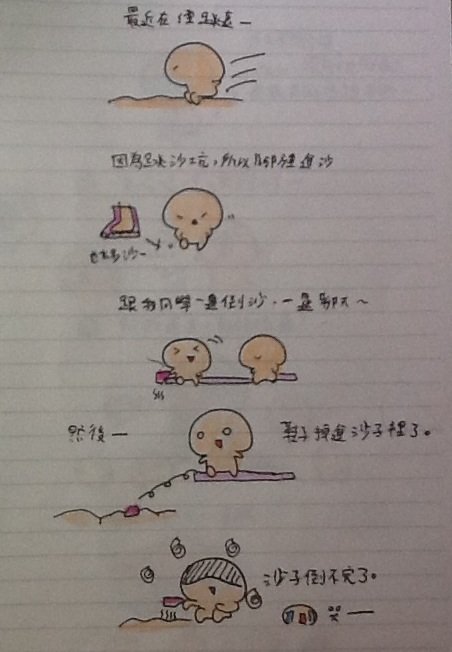 最近在練跳遠—
因為跳沙坑，所以腳鍾進沙
也太多沙—
跟我同學一邊倒沙，一邊聊天～
然後—
鞋子掉進沙子裡了。
沙子倒不完了。
哭—